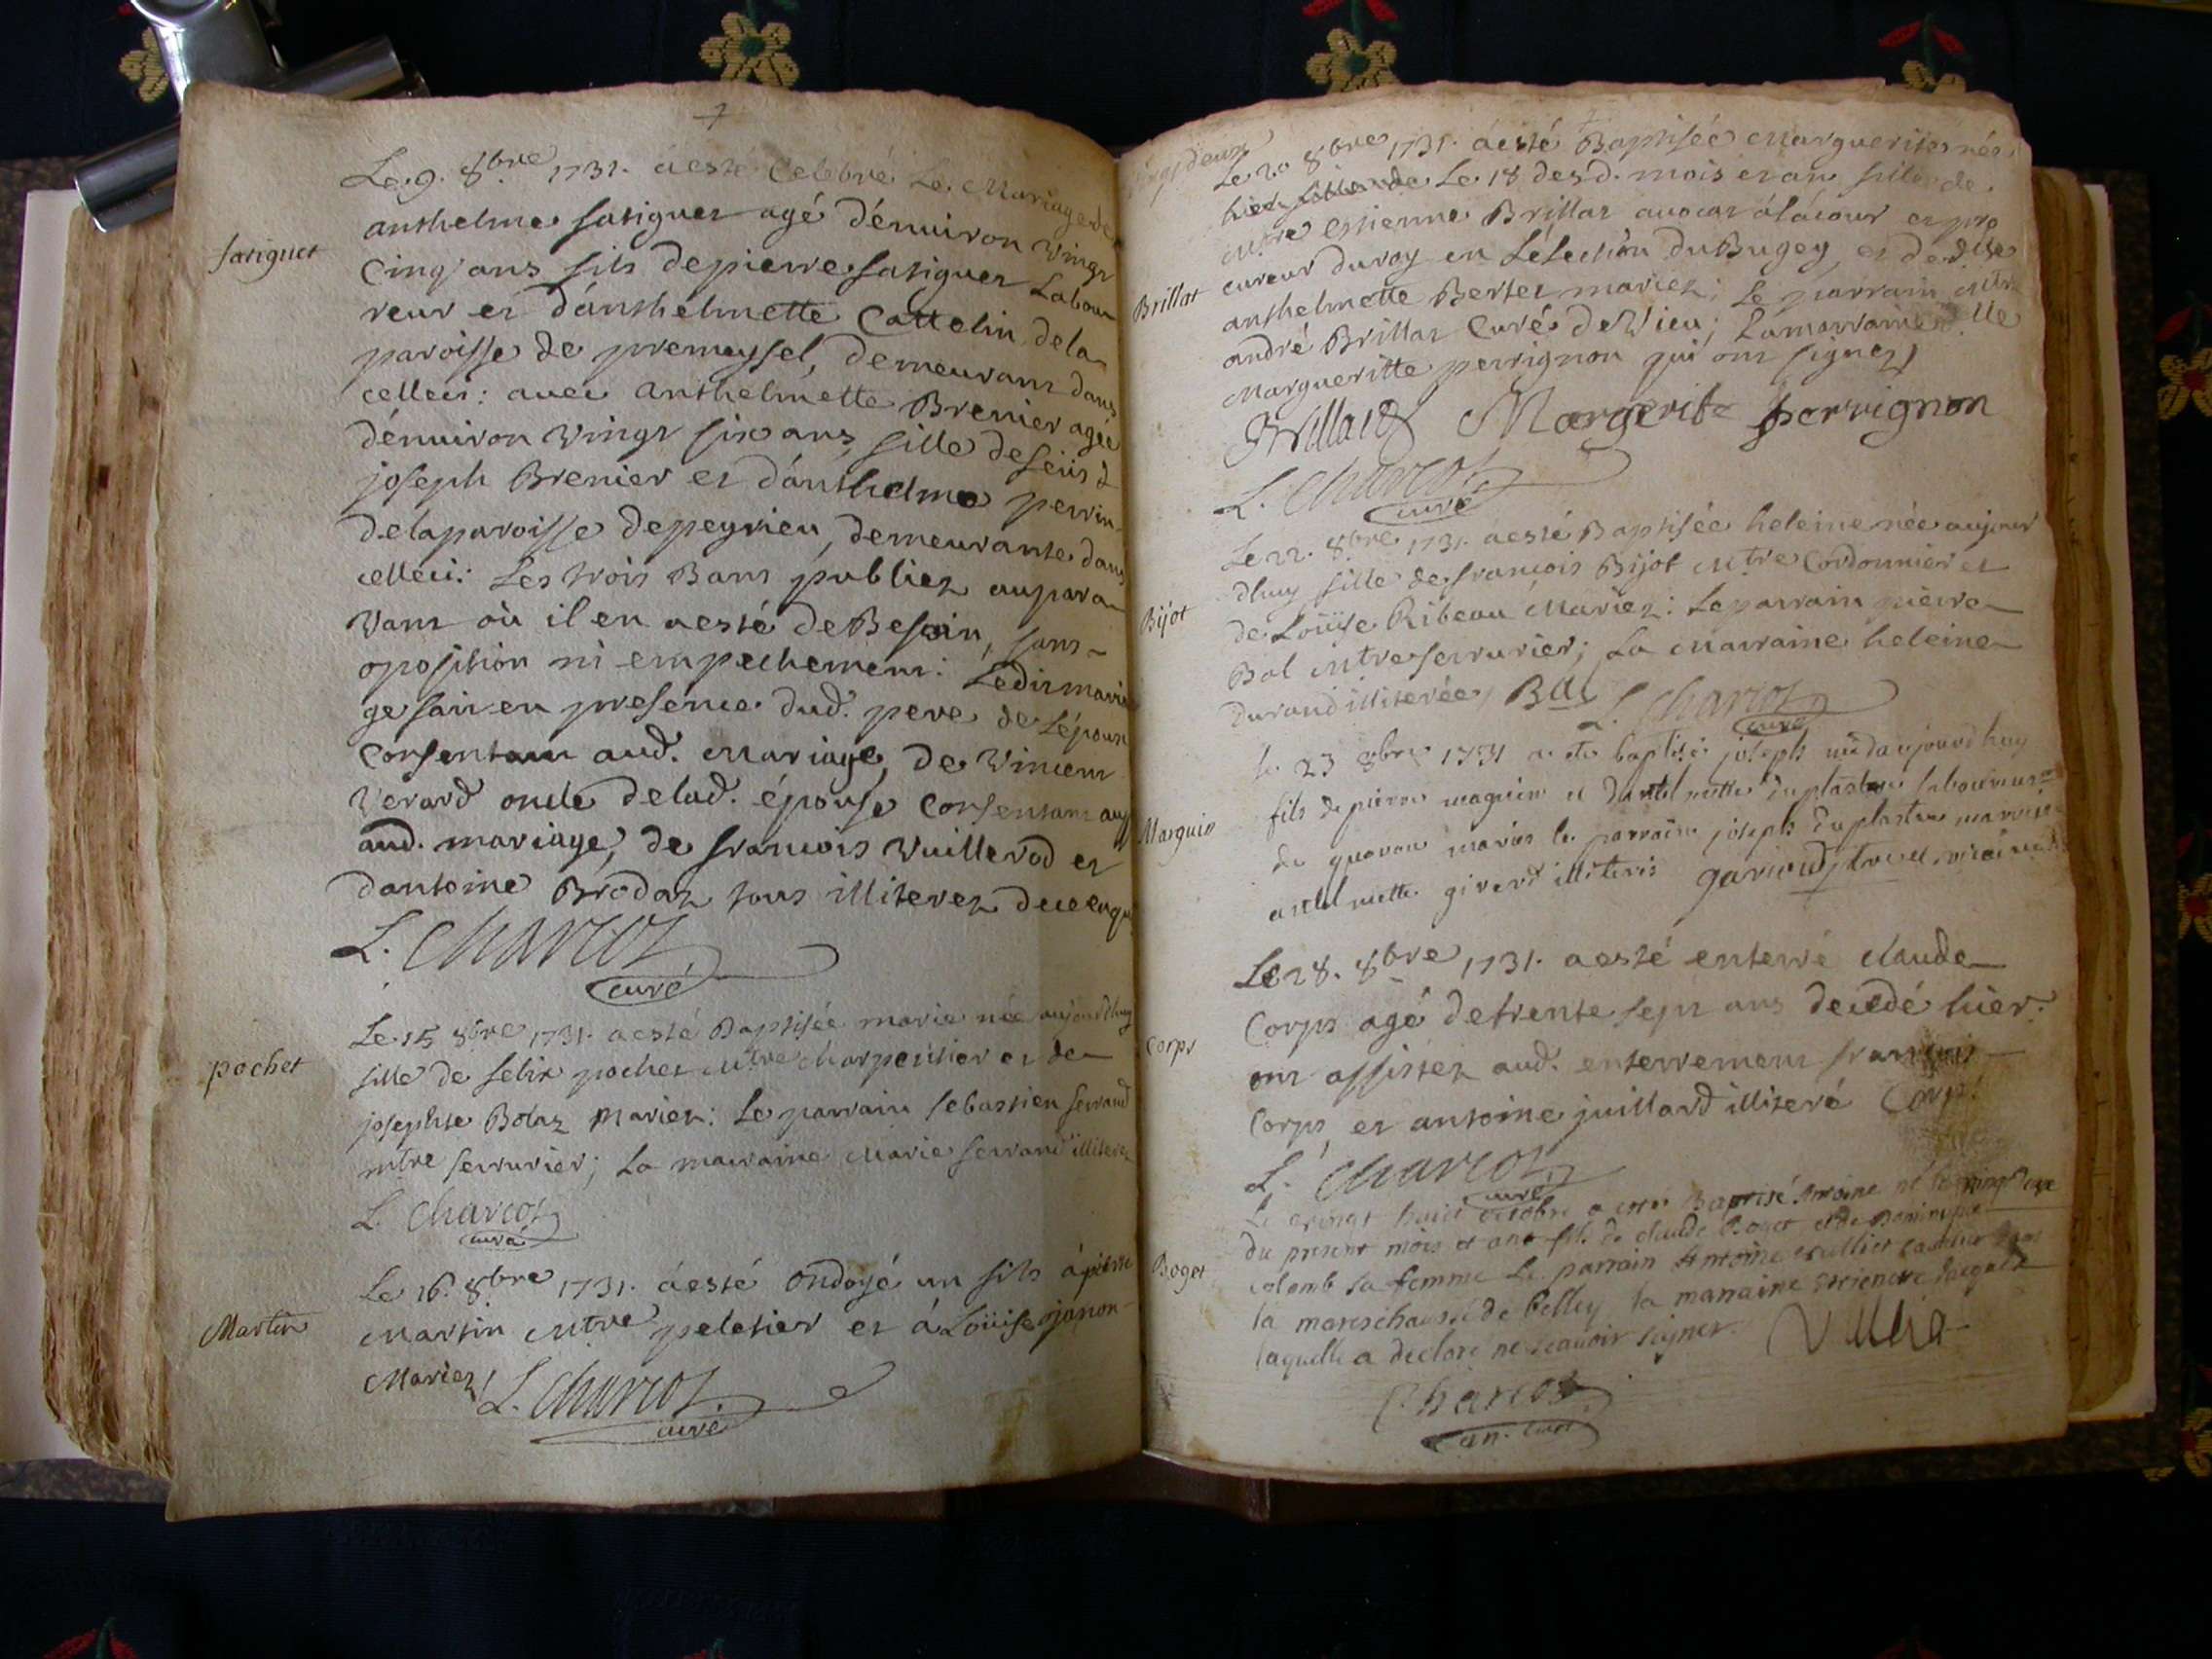 Le 9. 8bre 1731. a esté Celebré Le Mariage de
fatiguet
anthelme fatiguet agé d'enuiron vingt
Cinq ans fils de pierre fatiguet Labou
reur et d'anthelmette Cattelin de la
paroisse de premeyssel, demeurant dans
celleci: avec anthelmette Brenier agée
d'enuiron vingt six ans, fille de feus
joseph Brenier et d'anthelme perrin
de la paroisse de peyrieu, demeurante dans
celleci: Les trois Bans publiez aupara
vant où il en a esté de Besoin, sans
oposition ni empechement: Ledit maria
ge fait en presence dud. pere de L'époux
Consentant aud. Mariage, de Vincent
Verard oncle de lad. épouse Consentant auss
aud. mariage, de francois Vuillerod et
d'antoine Brodaz tous illiterez de ce enquis
L. Charcot
curé
Le 15 8bre 1731. a esté Baptisée marie née aujourdhuy
pochet
fille de felix pochet Mtre charpentier et de
josephte Bolaz Mariez: Le parrain sebastien ferrand
mtre serrurier; La marraine Marie ferrand illiterez
L. Charcot
curé
Le 16. 8bre 1731. a esté ondoyé un fils à pierre
Martin
Martin Mtre peletier et à Loüise janon
Mariez L. Charcot
curé
vingt deux
Le 20 8bre 1731. a esté Baptisée Marguerite née
hier fille de Le 18 des d. mois et an fille de
Mtre estienne Brillat auocat à la cour et pro
cureur du roy en L'élection du Bugey, et de dlle
Brillat
anthelmette Bertet mariez; Le parrain Mtre
andré Brillat Curé de Vieu; La marraine dlle
Margueritte perrignon qui ont signez
Brillat Margerite perrignon
L. Charcot
curé
Le 22. 8bre 1731. a esté Baptisée heleine née aujour
d'huy fille de francois Bijot Mtre Cordonnier et
Bijot
de Loüise Ribeau Mariez: Le parrain pierre
Bal Mtre serrurier; La Marraine heleine
durand illiterée Bal L. Charcot
curé
le 23 8bre 1731 a ete baptisé joseph né daujourdhuy
fils de pierre et duplastre laboureur
Marguin
de mariés le parrain joseph duplastre marraine
antelmette girerd illiterés
Le 28. 8bre 1731. a esté enterré claude
Corps agé de trente sept ans decedé hier
Corps
ont assistez aud. enterrement francois
Corps, et antoine juillard illiteré Corps
L. Charcot
curé
Le vingt huict octobre a esté Baptisé Antoine né le vingt
du present mois et ans fils de claude Boget et de Dominique
Boget
colomb sa femme Le parrain Antoine Vulliet dans
la mareschaussé de belley la marraine
laquelle a declaré ne scauoir signer
Charcot